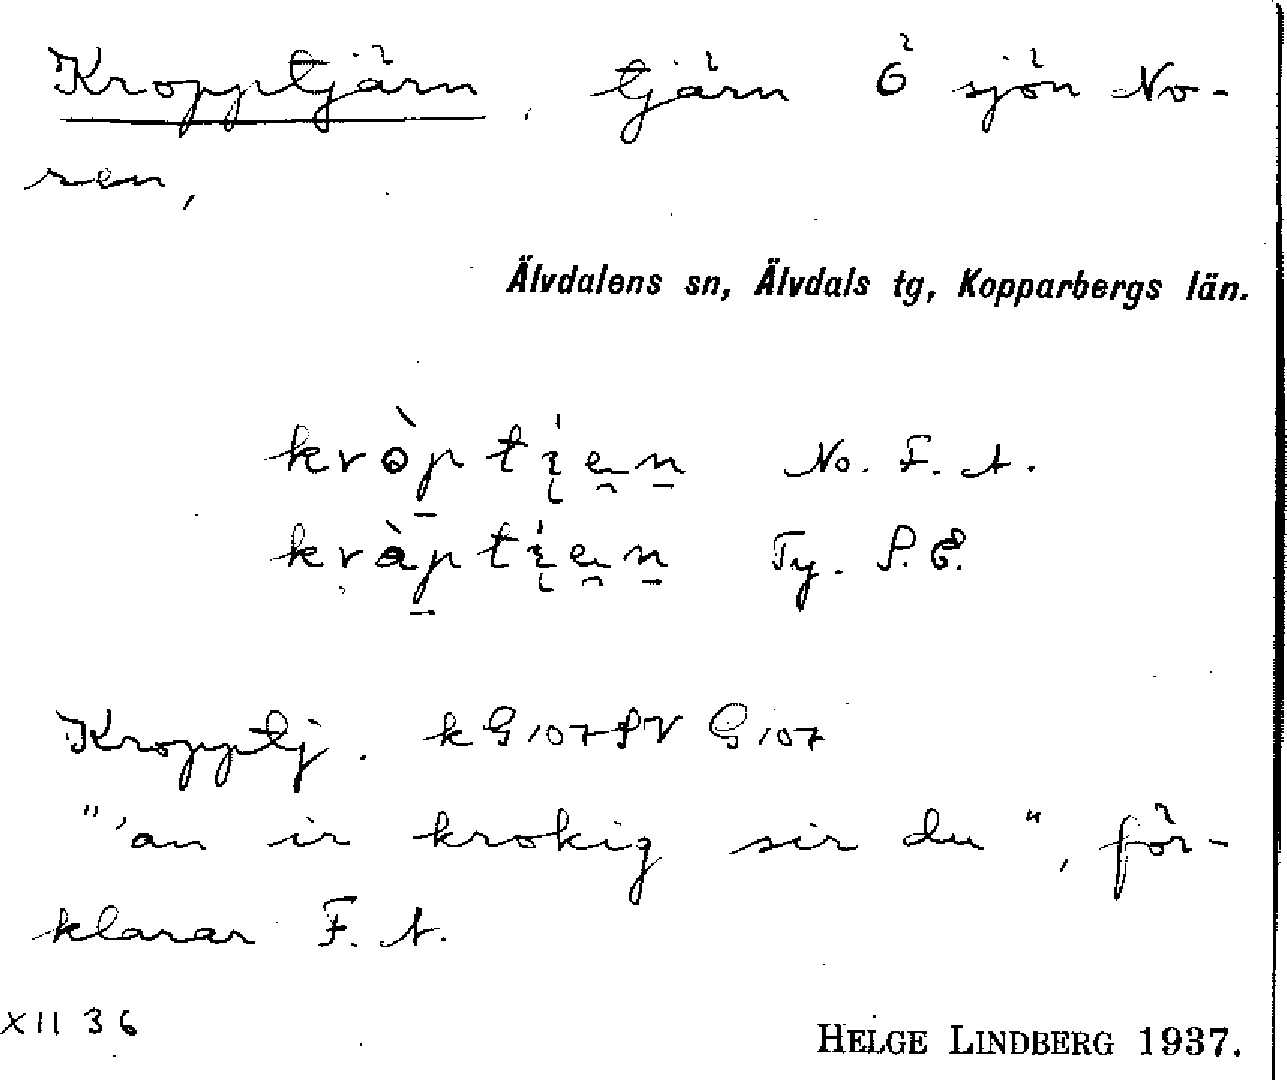 Kropptjärn, tjärn Ö sjön No-
ren,
Älvdalens sn, Älvdals tg, Kopparbergs län.
kròptįen No. F. A.
kràptįen Ty. P. E.
Kropptj. k G 107 PV G 107
"'an ir krokig sir du", för-
klarar F. A.
XII 36
HELGE LINDBERG 1937.